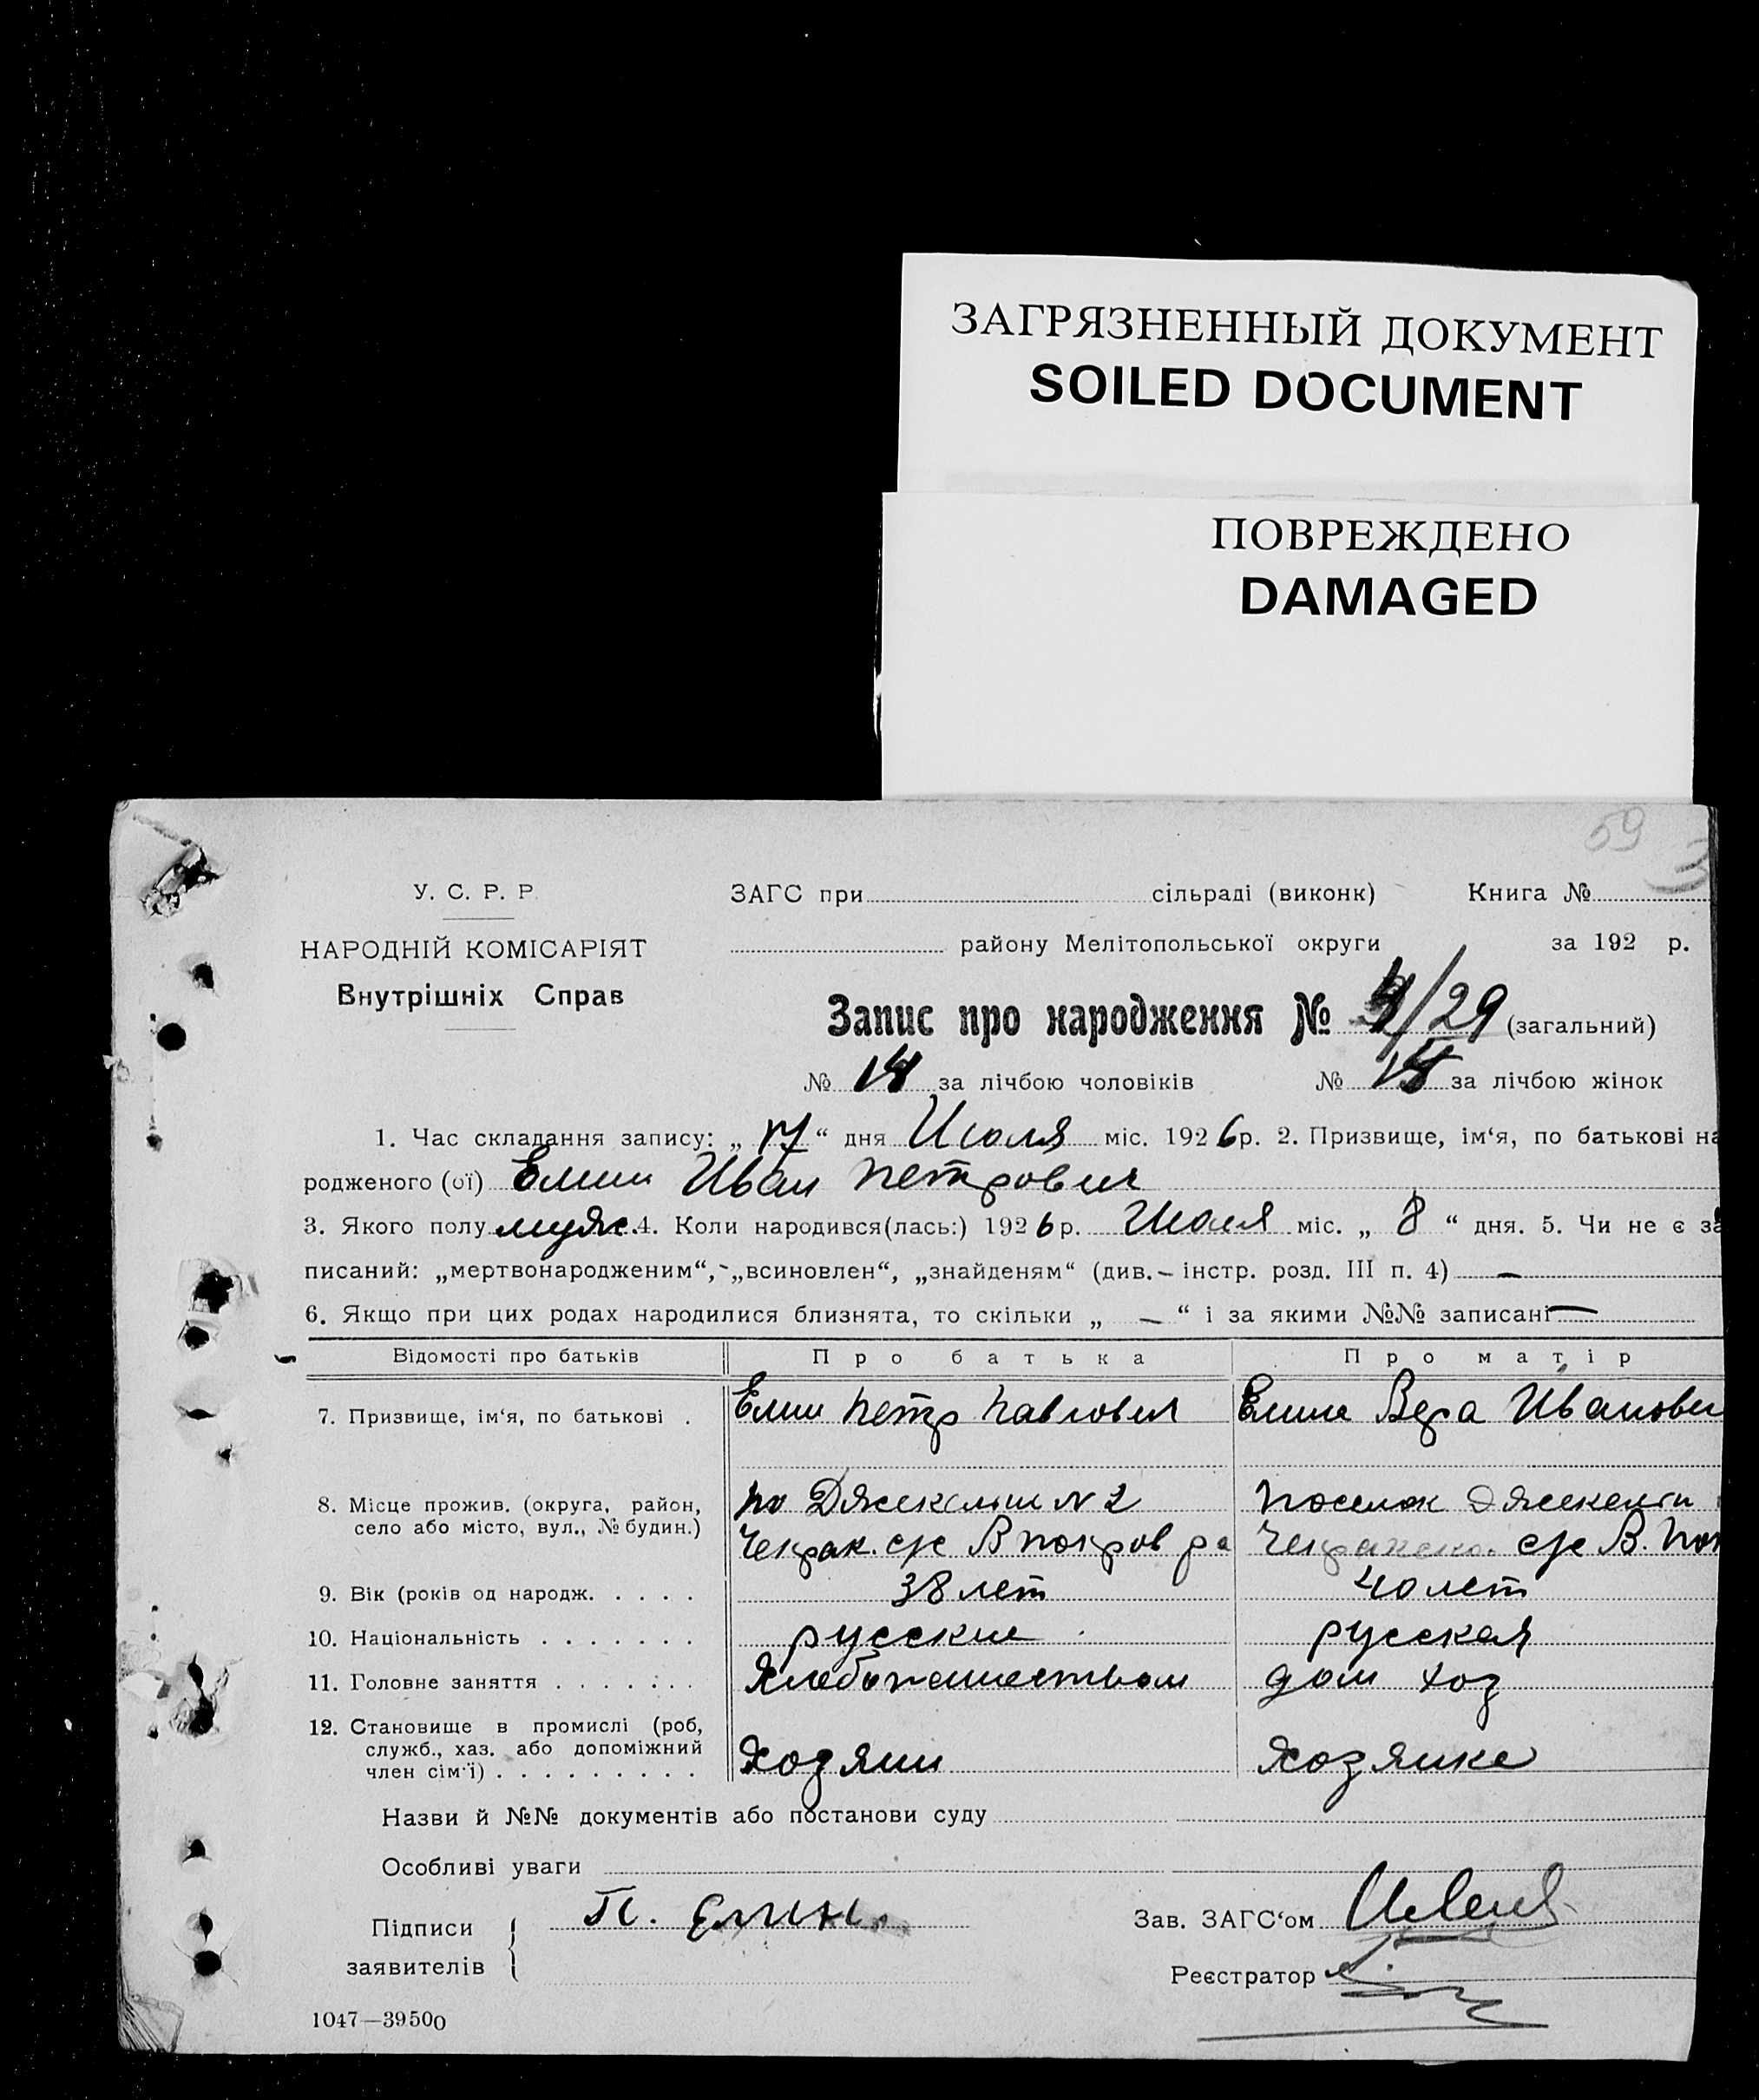 ЗАГРЯЗНЕННЫЙ ДОКУМЕНТ
SOILED DOCUMENT
ПОВРЕЖДЕНО
DAMAGED
59
3
У. С. Р. Р.
ЗАГС при сільраді (виконк) Книга №
НАРОДНІЙ КОМІСАРІЯТ
району Мелітопольської округи за 192 р.
Внутрішніх Справ
Запис про народження № /29 (загальний)
№ за лічбою чоловіків № за лічбою жінок
1. Час складання запису: „ 17 “ дня Июля міс. 1926р. 2. Призвище, ім‘я, по батькові на
родженого (ої) Елин Иван Петрович
3. Якого полу муж. 4. Коли народився(лась:) 1926р. Июля міс. „ 8 “ дня. 5. Чи не є за
писаний: „мертвонародженим“, „всиновлен“, „знайденям“ (див. інстр. розд. III п. 4) —
6. Якщо при цих родах народилися близнята, то скільки „ — “ і за якими №№ записані —
Відомості про батьків Про батька Про матір
7. Призвище, ім‘я, по батькові . Елин Петр Павлович Елина Вера Иванови
8. Місце прожив. (округа, район, по №2 Поселок
село або місто, вул., № будин.) с/с В Покров ра с/с В. Пок
9. Вік (років од народж. . . . . 38 лет 40 лет
10. Національність . . . . . . . русские русская
11. Головне заняття . . . . . . . Хлебопашеством дом хоз
12. Становище в промислі (роб,
служб., хаз. або допоміжний
член сім‘ї) . . . . . . . . . Хозяин Хозяйка
Назви й №№ документів або постанови суду
Особливі уваги
Підписи П. Елин
заявителів
Зав. ЗАГС‘ом
Реєстратор
1047—39500